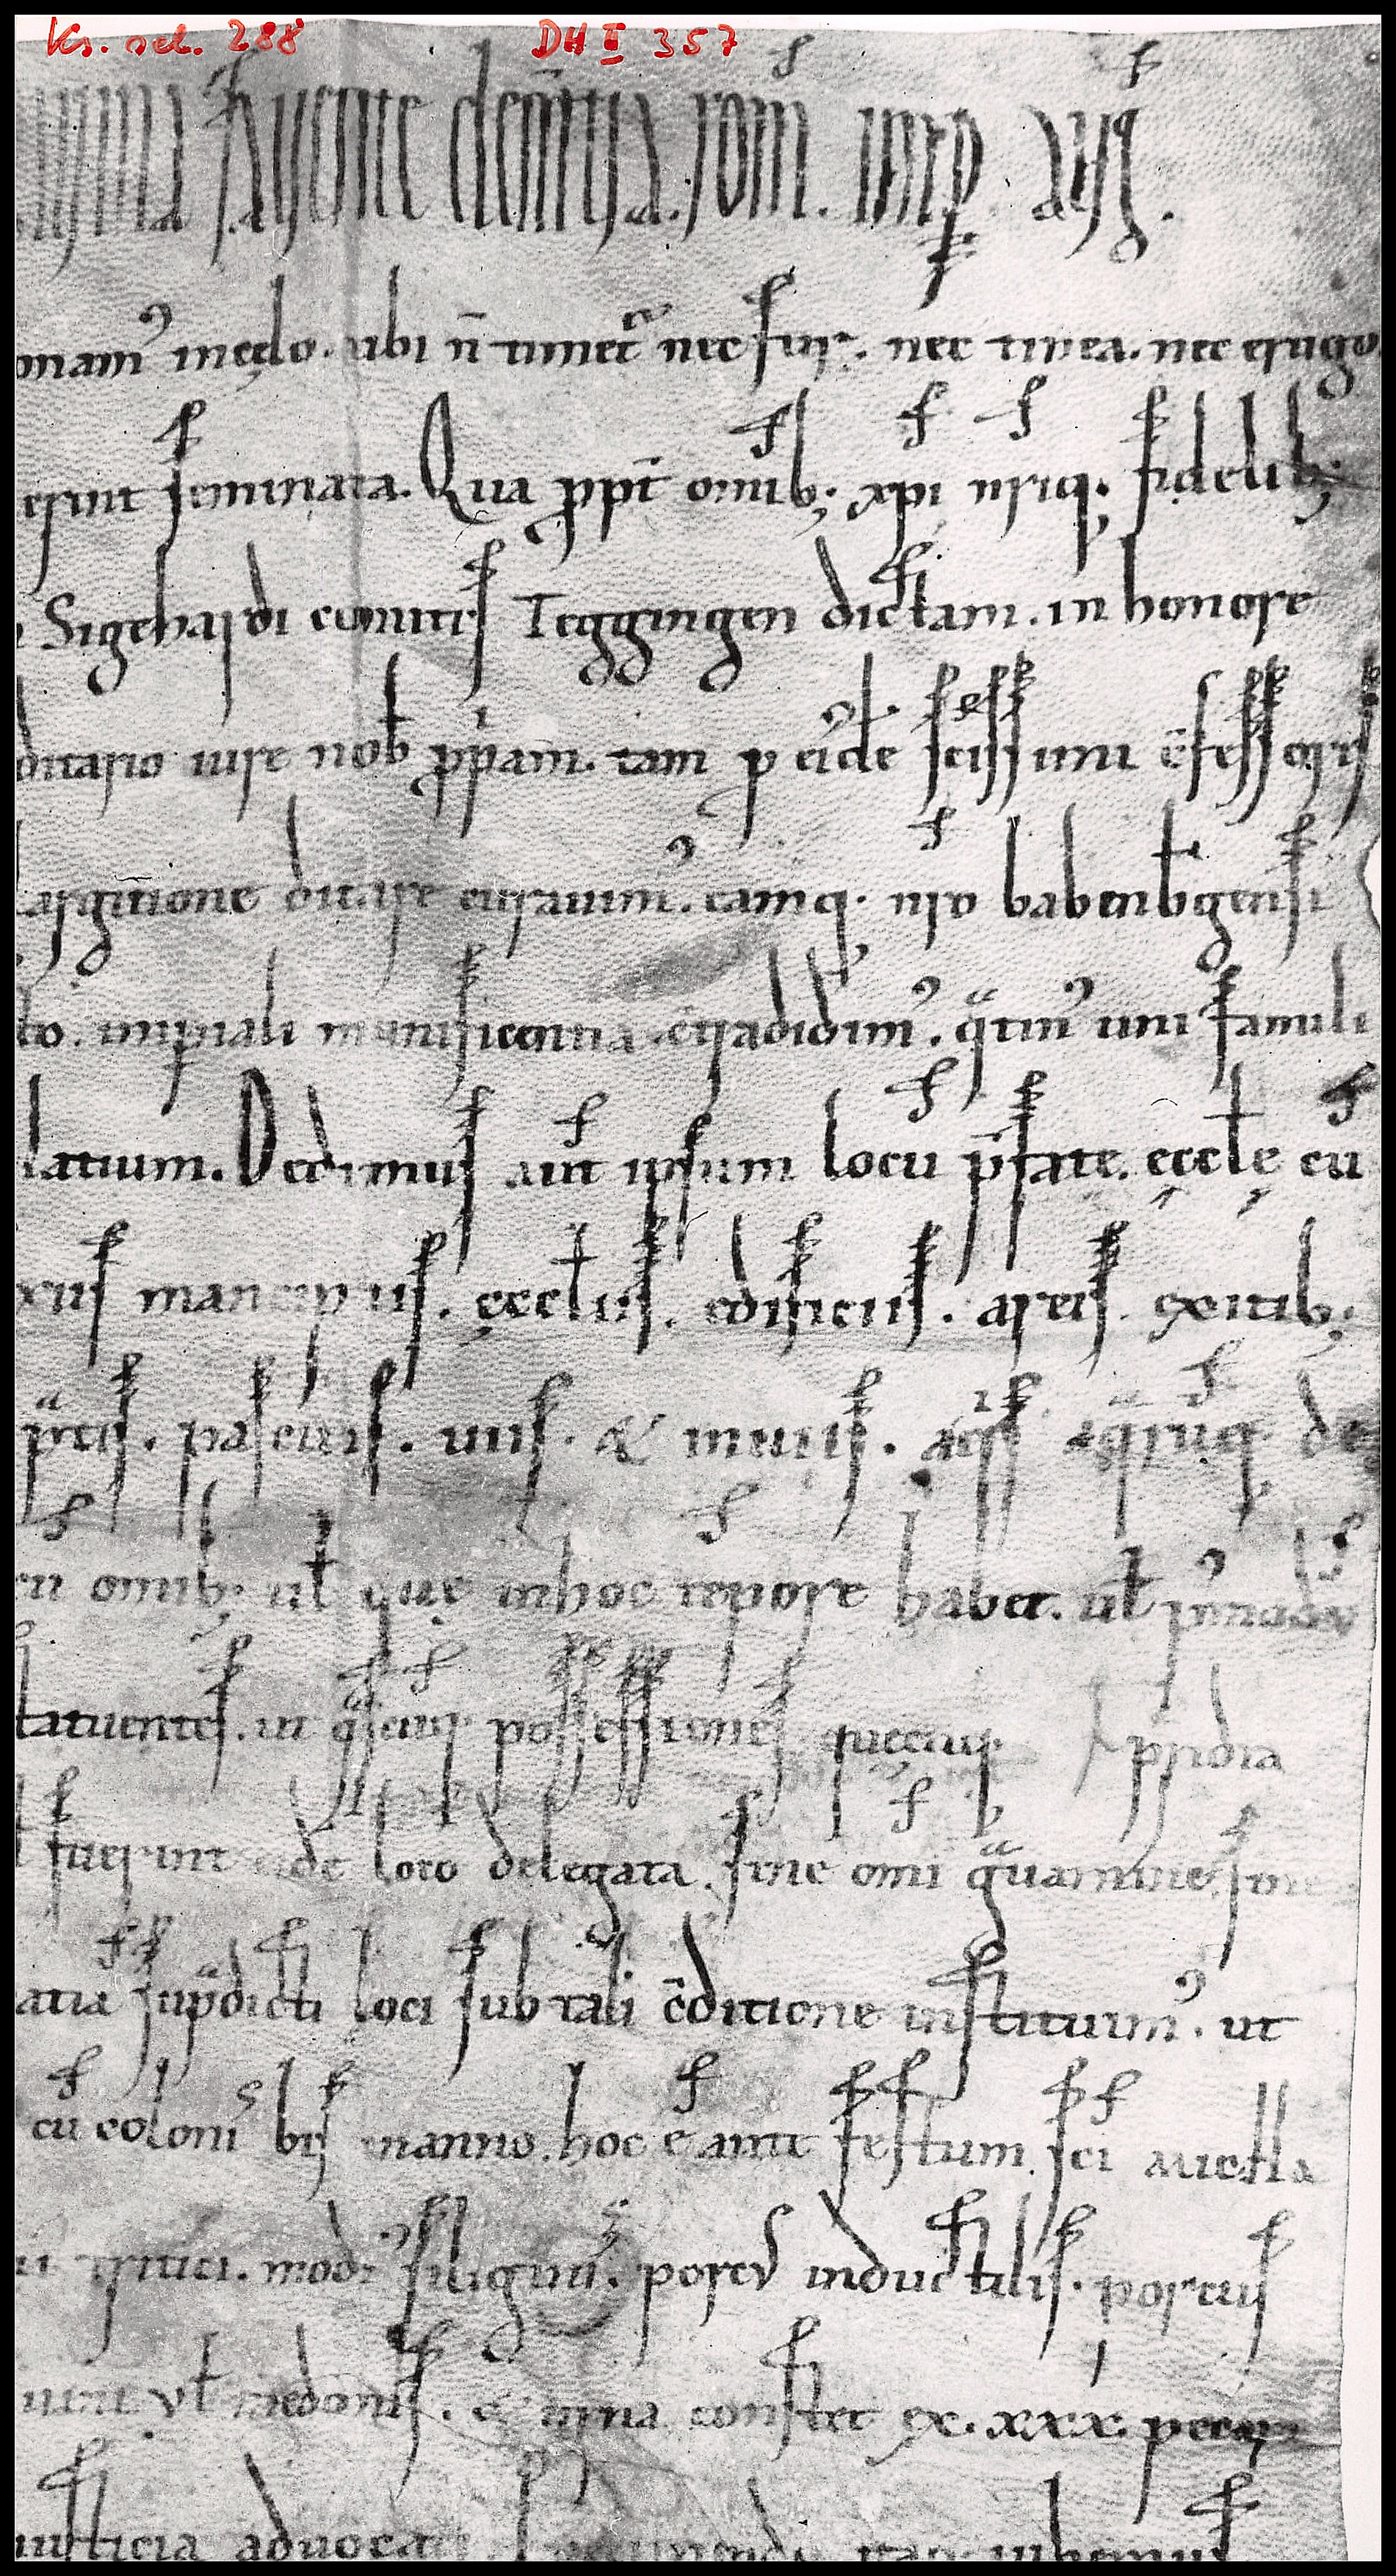 Ks. sel. 288 DH II 357
fauente clem̄tia. rom̄. imp̄ auḡ.
onam᷒ in cęlo. ubi n̄ timet᷑ nec fur. nec tinea. nec erugo
erint seminata. Qua ꝓpt̄ om̄ib; xp̄i nr̄iq; fidelib;
Sigehardi comitis Teggingen dictam. in honore
ditario iure nob̄ ꝓp̄am. tam ꝑ ei᷒dē sc̄issimi c̄fessoris
largitione ditare curauim᷒. eamq; nr̄o babenb̄gensi
to. imꝑiali munificentia c̄tradidim᷒. qͣtin᷒ uni famuli
latium. Dedimus aut̄ ipsum locū p̄fatę ęcclę cū
xiis mancipiis. ęccl̄iis. edificiis. areis. exitib;
pͣtis. pascuis. uiis & inuiis. aq̄s aqͣrūq; de
cū om̄ib; ul̄ quę in hoc tēpore habet. ul̄ in
tatuentes. ut qͣscūq; possessiones quęcūq; p̄dia
l fuerint eidē loco delegata. sine om̄i gͣuamine sine
atiā sup̄dicti loci sub tali c̄ditione instituim᷒. ut
cū coloniˢ bis in anno. hoc ē aut̄ festum sc̄i
ii tritici. modi᷒ siligini᷒. porc᷒ inductilis. porcus
uini vl̄ medonis. & urna constet ex. xxx. pecar
iusticia aduocati iubemus